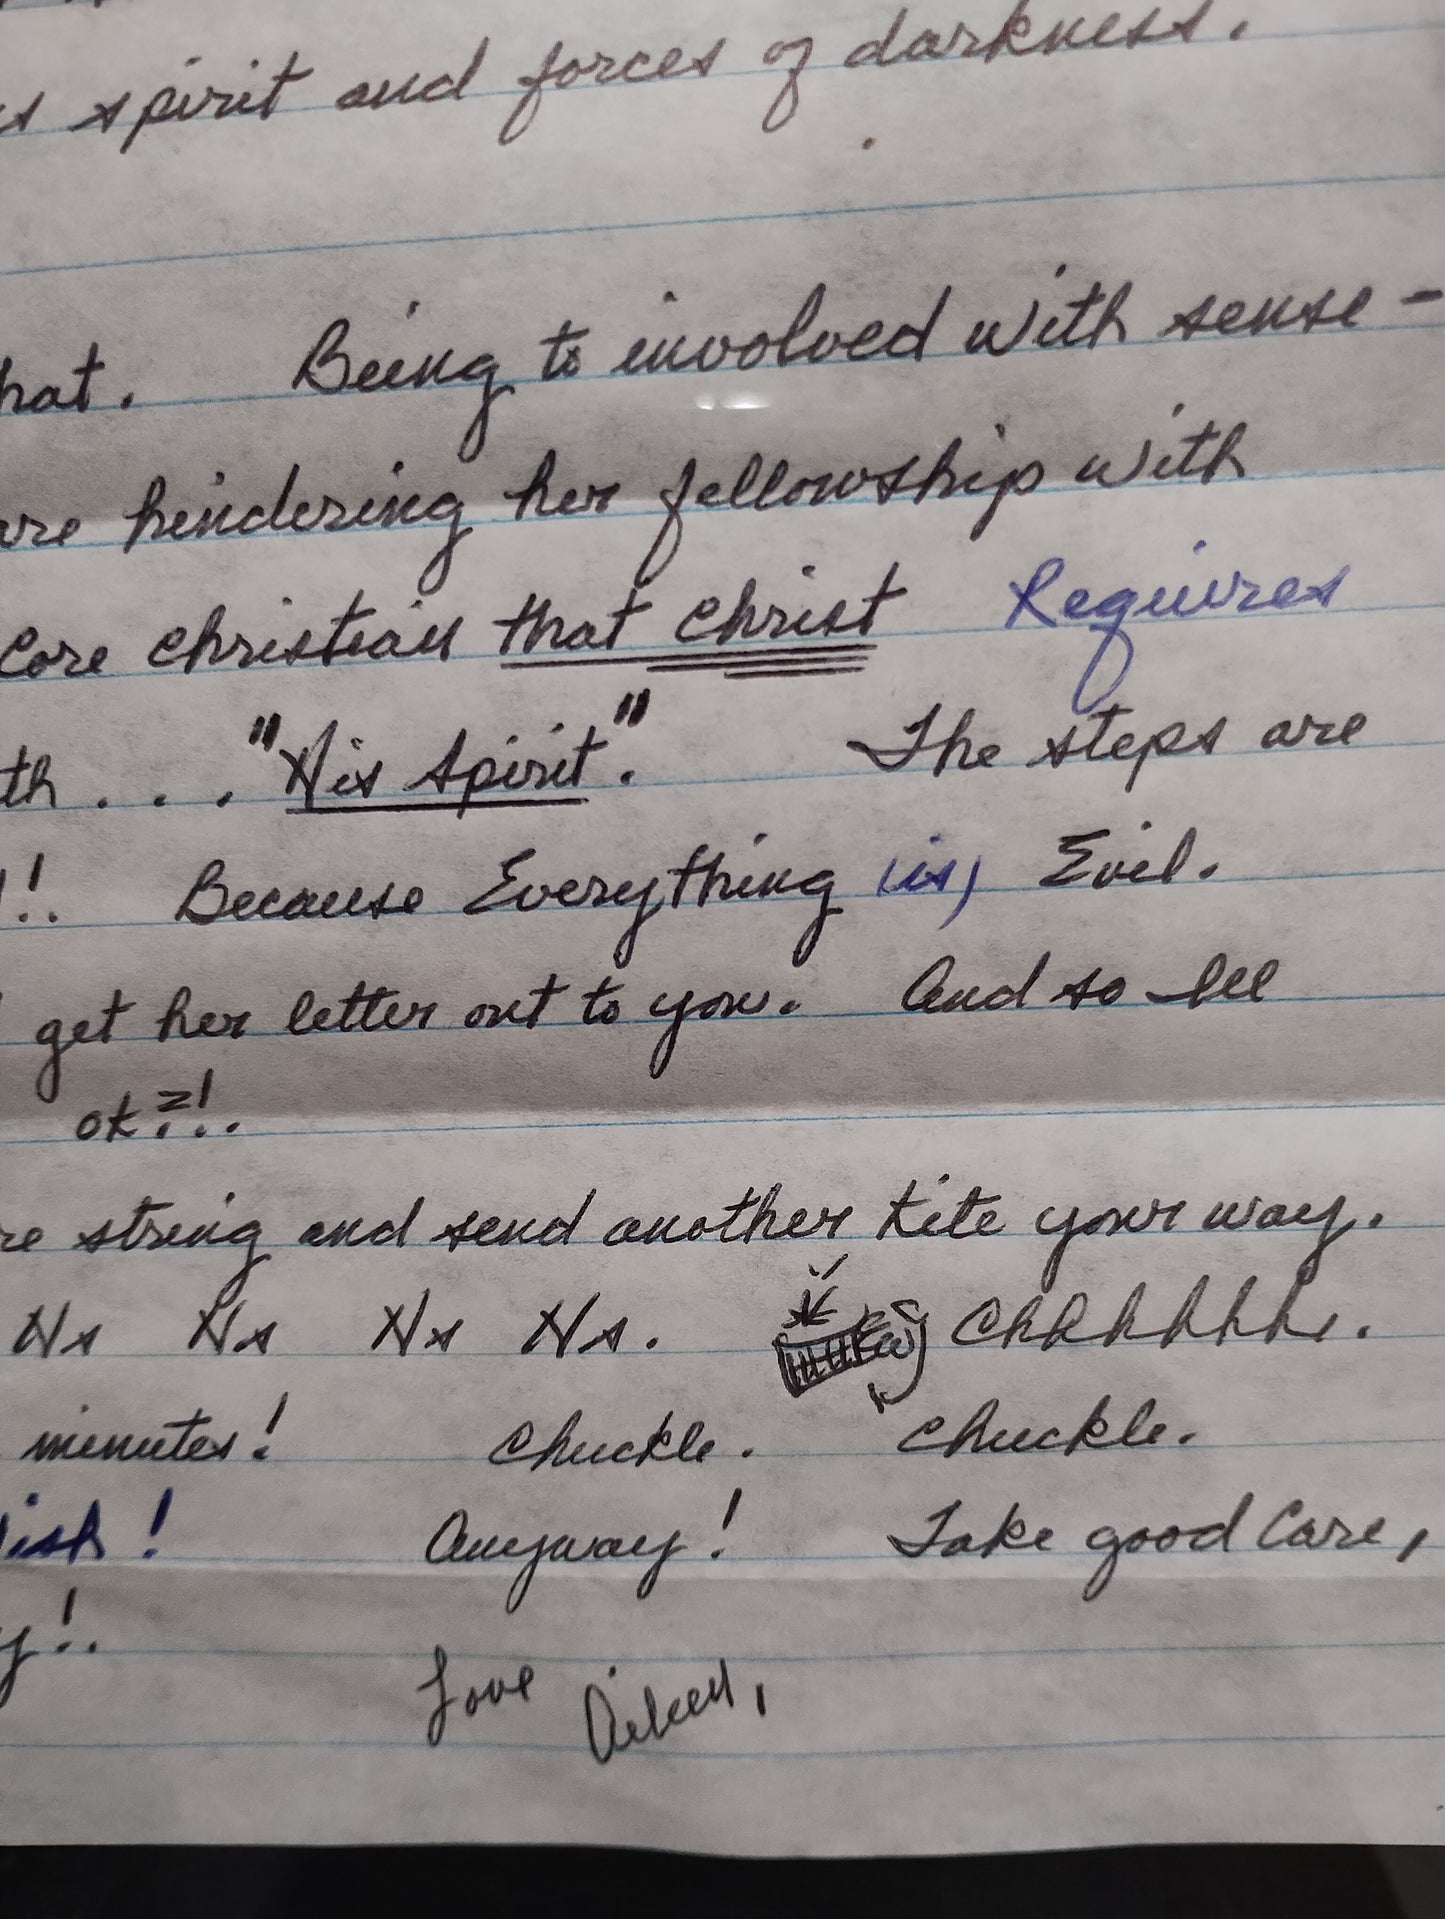 s spirit and forces of darkness.
hat. Being to involved with sense -
are hindering her fellowship with
Core christian that christ Requires
th . . . . "His spirit."
The steps are
!! Because Everything (is) Evil.
get her letter out to you. And so
ok?!.
re string and send another kite your way.
Hs Hs Hs Hs. Chhhhhh.
minutes! chuckle. chuckle.
ish! Anyway! Take good Care,
y!.
Love